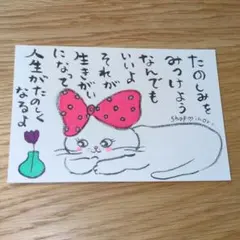 たのしみを
みつけよう
なんでも
いいよ
それが
生きがい
になって
人生がたのしく
なるよ